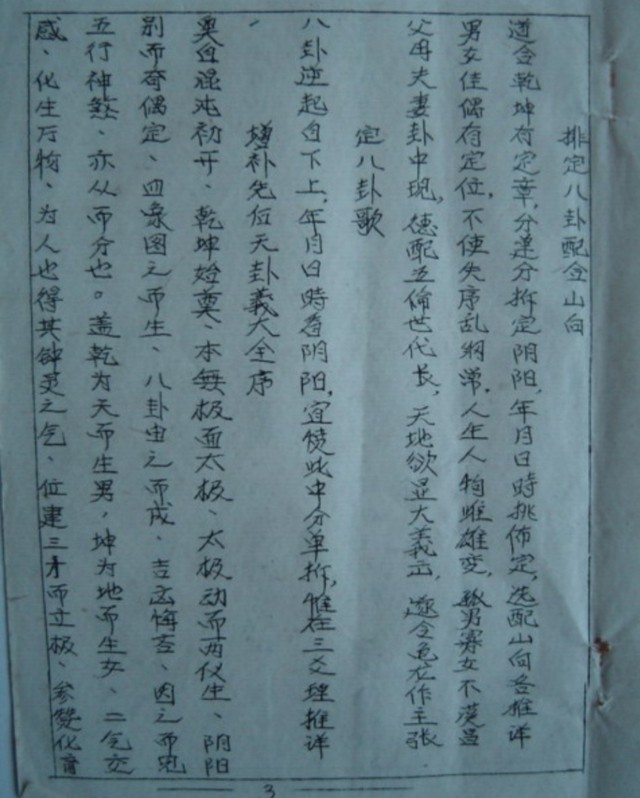 排定八卦配合山向
道合乾坤有定章，分逆分拆定阴阳，年月日時排佈定，选配山向各推详
男女佳偶有定位，不使失序乱纲常，人生人物雌雄变，孤男寡女不
父母夫妻卦中现，德配五倫世代长，天地欲显大義正，作主张
定八卦歌
八卦逆起自下上，年月日時看阴阳，宜從此中分单拆，惟在三爻理推详
增补先后天卦義大全序
奥自混沌初开、乾坤始奠、本無极而太极、太极动而两仪生、阴阳
别而奇偶定、四象图之而生、八卦由之而成、吉凶悔吝、因之而見
五行神煞、亦从而分也。盖乾为天而生男，坤为地而生女、二气交
感、化生万物、为人也得其钟灵之气、位建三才而立极、参贊化育
3